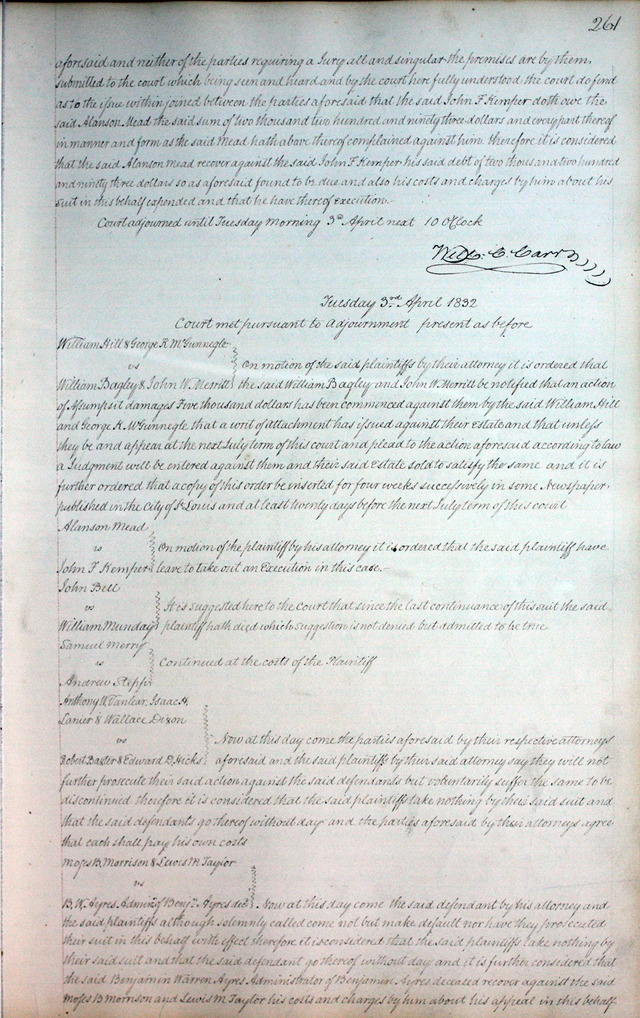 261
aforesaid and neither of the parties requiring a Jury all and singular the premises are by them
submitted to the court which being seen and heard and by the court here fully understood the court do find
as to the issue within joined between the parties aforesaid that the said John F Kemper doth owe the
said Alanson Mead the said sum of two thousand two hundred and ninety three dollars and every part thereof
in manner and form as the said Mead hath above thereof complained against him. therefore it is considered
that the said Alanson Mead recover against the said John F Kemper his said debt of two thousand two hundred
and ninety three dollars so as aforesaid found to be due and also his costs and charges by him about his
suit in this behalf expended and that he have thereof execution.-
Court adjourned until Tuesday morning 3d April next 10 O'Clock
Will: C. Carr
Tuesday 3rd April 1832
Court met pursuant to adjournment present as before
William Hill & George K McGunnegle
vs
On motion of the said plaintiffs by their attorney it is ordered that
William Bagley & John W. Merritt the said William Bagley and John W. Merritt be notified that an action
of Assumpsit damages Five thousand dollars has been commenced against them by the said William Hill
and George K. McGunnegle that a writ of attachment has issued against their Estate and that unless
they be and appear at the next July term of this court and plead to the action aforesaid according to law
a Judgment will be entered against them and their said Estate sold to satisfy the same and it is
further ordered that a copy of this order be inserted for four weeks successively in some Newspaper
published in the City of St Louis and at least twenty days before the next July term of this court
Alanson Mead
vs
On motion of the plaintiff by his attorney it is ordered that the said plaintiff have
John F Kemper leave to take out an Execution in this case.-
John Bell
vs
It is suggested here to the court that since the last continuance of this suit the said
William Munday plaintiff hath died which suggestion is not denied but admitted to be true
Samuel Merry
vs
Continued at the costs of the Plaintiff
Andrew
Anthony W Vanlear, Isaac H.
Lanier & Wallace Dixon
vs
Now at this day come the parties aforesaid by their respective attorneys
Robert Baxter & Edward D. Hicks aforesaid and the said plaintiffs by their said attorney say they will not
further prosecute their said action against the said defendants but voluntarily suffer the same to be
discontinued therefore it is considered that the said plaintiffs take nothing by their said suit and
that the said defendants go thereof without day and the parties aforesaid by their attorneys agree
that each shall pay his own costs
Moses B. Morrison & Lewis M Taylor
vs
B. W. Ayres Admir. of Benjn. Ayres decd. Now at this day come the said defendant by his attorney and
the said plaintiffs although solemnly called come not but make default nor have they prosecuted
their suit in this behalf with effect therefore it is considered that the said plaintiffs take nothing by
their said suit and that the said defendant go thereof without day and it is further considered that
the said Benjamin Warren Ayres Administrator of Benjamin Ayres deceased recover against the said
Moses B Morrison and Lewis M Taylor his costs and charges by him about his appeal in this behalf